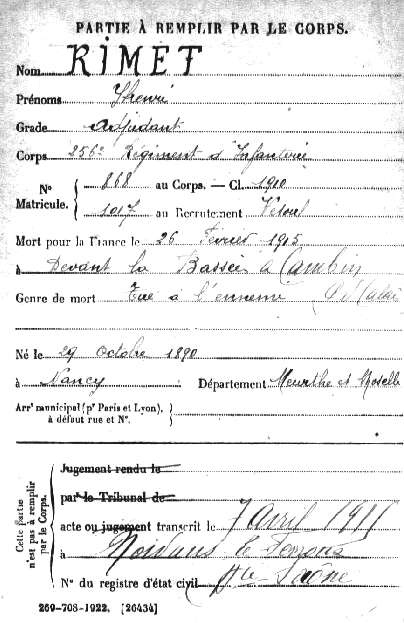 PARTIE À REMPLIR PAR LE CORPS.
Nom RIMET
Prénoms Henri
Grade adjudant
Corps 256e Régiment d'Infanterie
Nº Matricule. { 868 au Corps. — Cl. 1910
1017 au Recrutement Vesoul
Mort pour la France le 26 Février 1915
à Devant la Bassée à Cambrin
Genre de mort Tué à l'ennemi
Né le 29 octobre 1890
à Nancy Département Meurthe et Moselle
Arrt municipal (pr Paris et Lyon),
à défaut rue et Nº.
Cette partie n'est pas à remplir par le Corps.
Jugement rendu le
par le Tribunal de
acte ou jugement transcrit le 7 avril 1915
à Noidans le Ferroux
Nº du registre d'état civil Hte Saône
269-708-1922. [26434]